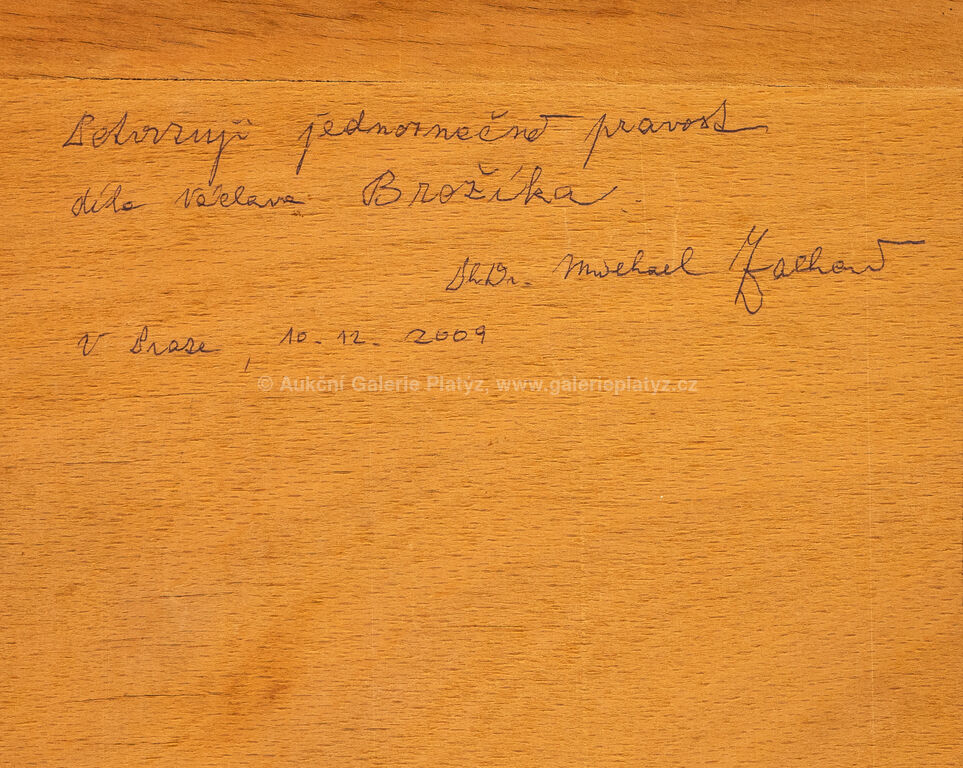 Potvrzuji jednoznačně pravost
díla Václava Brožíka.
PhDr. Michael Zachař
V Praze, 10. 12. 2009
© Aukční Galerie Platýz, www.galerieplatyz.cz